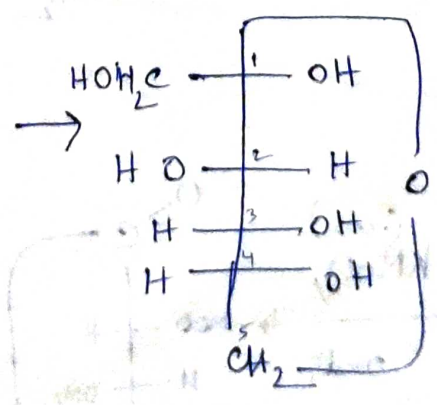 HOH₂C 1 OH
H O 2 H
O
H 3 OH
H 4 OH
5
CH₂